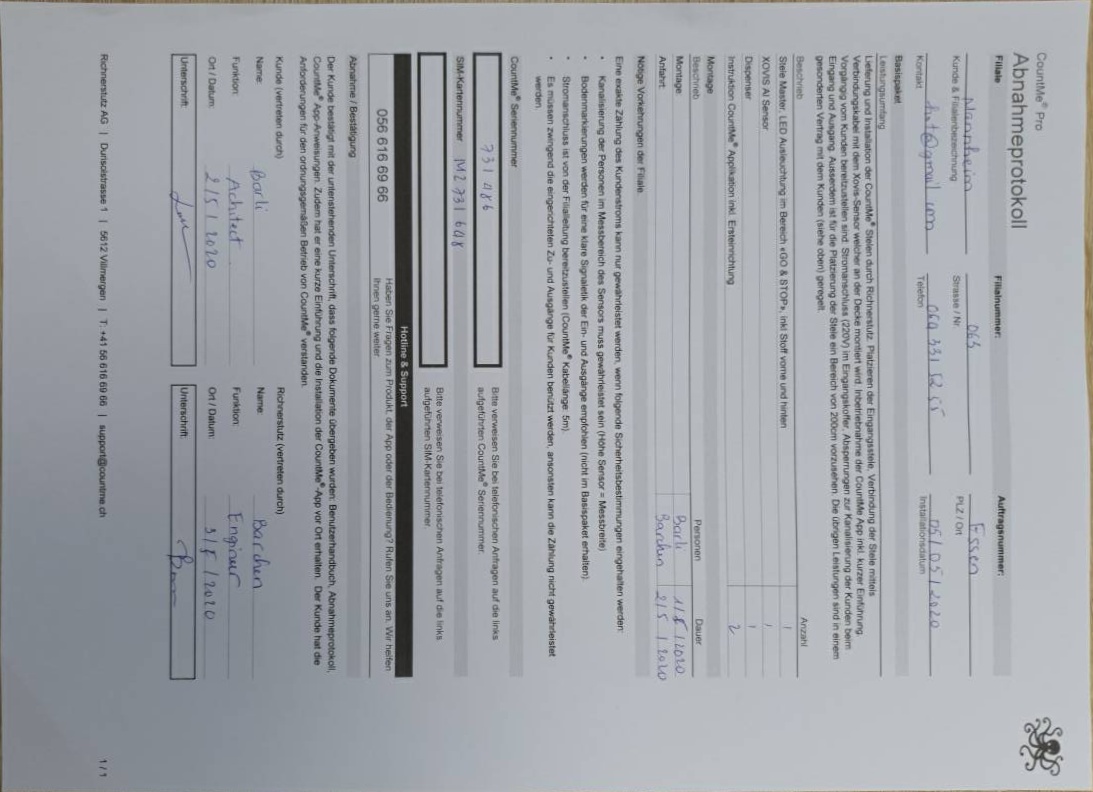 CountMe® Pro
Abnahmeprotokoll
Filiale Filialnummer: Auftragsnummer:
Mannheim 063 Essen
Kunde & Filialenbezeichnung Strasse / Nr. PLZ / Ort
@gmail.com 069 331 52 55 05/05/2020
Kontakt Telefon Installationsdatum
Basispaket
Leistungsumfang
Lieferung und Installation der CountMe® Stelen durch Richnerstutz. Platzieren der Eingangsstele, Verbindung der Stele mittels
Verbindungskabel mit dem Xovis-Sensor welcher an der Decke montiert wird. Inbetriebnahme der CountMe App inkl. kurzer Einführung.
Vorgängig vom Kunden bereitzustellen sind: Stromanschluss (220V) im Eingangskoffer, Absperrungen zur Kanalisierung der Kunden beim
Eingang und Ausgang. Ausserdem ist für die Platzierung der Stele ein Bereich von 200cm vorzusehen. Die übrigen Leistungen sind in einem
gesonderten Vertrag mit dem Kunden (siehe oben) geregelt.
Beschrieb Anzahl
Stele Master, LED Ausleuchtung im Bereich «GO & STOP», inkl Stoff vorne und hinten 1
XOVIS AI Sensor 1
Dispenser 1
Instruktion CountMe® Applikation inkl. Ersteinrichtung 2
Montage
Beschrieb Personen Dauer
Montage: Barli 1/5/2020
Anfahrt: Barchen 2/5/2020
Nötige Vorkehrungen der Filiale
Eine exakte Zählung des Kundenstroms kann nur gewährleistet werden, wenn folgende Sicherheitsbestimmungen eingehalten werden:
• Kanalisierung der Personen im Messbereich des Sensors muss gewährleistet sein (Höhe Sensor = Messbreite)
• Bodenmarkierungen werden für eine klare Signaletik der Ein- und Ausgänge empfohlen (nicht im Basispaket erhalten).
• Stromanschluss ist von der Filialleitung bereitzustellen (CountMe® Kabellänge: 5m)
• Es müssen zwingend die eingerichteten Zu- und Ausgänge für Kunden benützt werden, ansonsten kann die Zählung nicht gewährleistet
werden.
CountMe® Seriennummer
731 486
Bitte verweisen Sie bei telefonischen Anfragen auf die links
aufgeführten CountMe® Seriennummer.
SIM-Kartennummer M2 731 648
Bitte verweisen Sie bei telefonischen Anfragen auf die links
aufgeführten SIM-Kartennummer.
Hotline & Support
056 616 69 66
Haben Sie Fragen zum Produkt, der App oder der Bedienung? Rufen Sie uns an. Wir helfen
Ihnen gerne weiter.
Abnahme / Bestätigung
Der Kunde bestätigt mit der untenstehenden Unterschrift, dass folgende Dokumente übergeben wurden: Benutzerhandbuch, Abnahmeprotokoll,
CountMe® App-Anweisungen. Zudem hat er eine kurze Einführung und die Installation der CountMe®-App vor Ort erhalten. Der Kunde hat die
Anforderungen für den ordnungsgemäßen Betrieb von CountMe® verstanden.
Kunde (vertreten durch) Richnerstutz (vertreten durch)
Name: Barli Name: Barchen
Funktion: Achitect Funktion: Engineur
Ort / Datum: 2/5/2020 Ort / Datum: 3/5/2020
Unterschrift: Unterschrift:
Richnerstutz AG | Durisolstrasse 1 | 5612 Villmergen | T: +41 56 616 69 66 | support@countme.ch 1/1